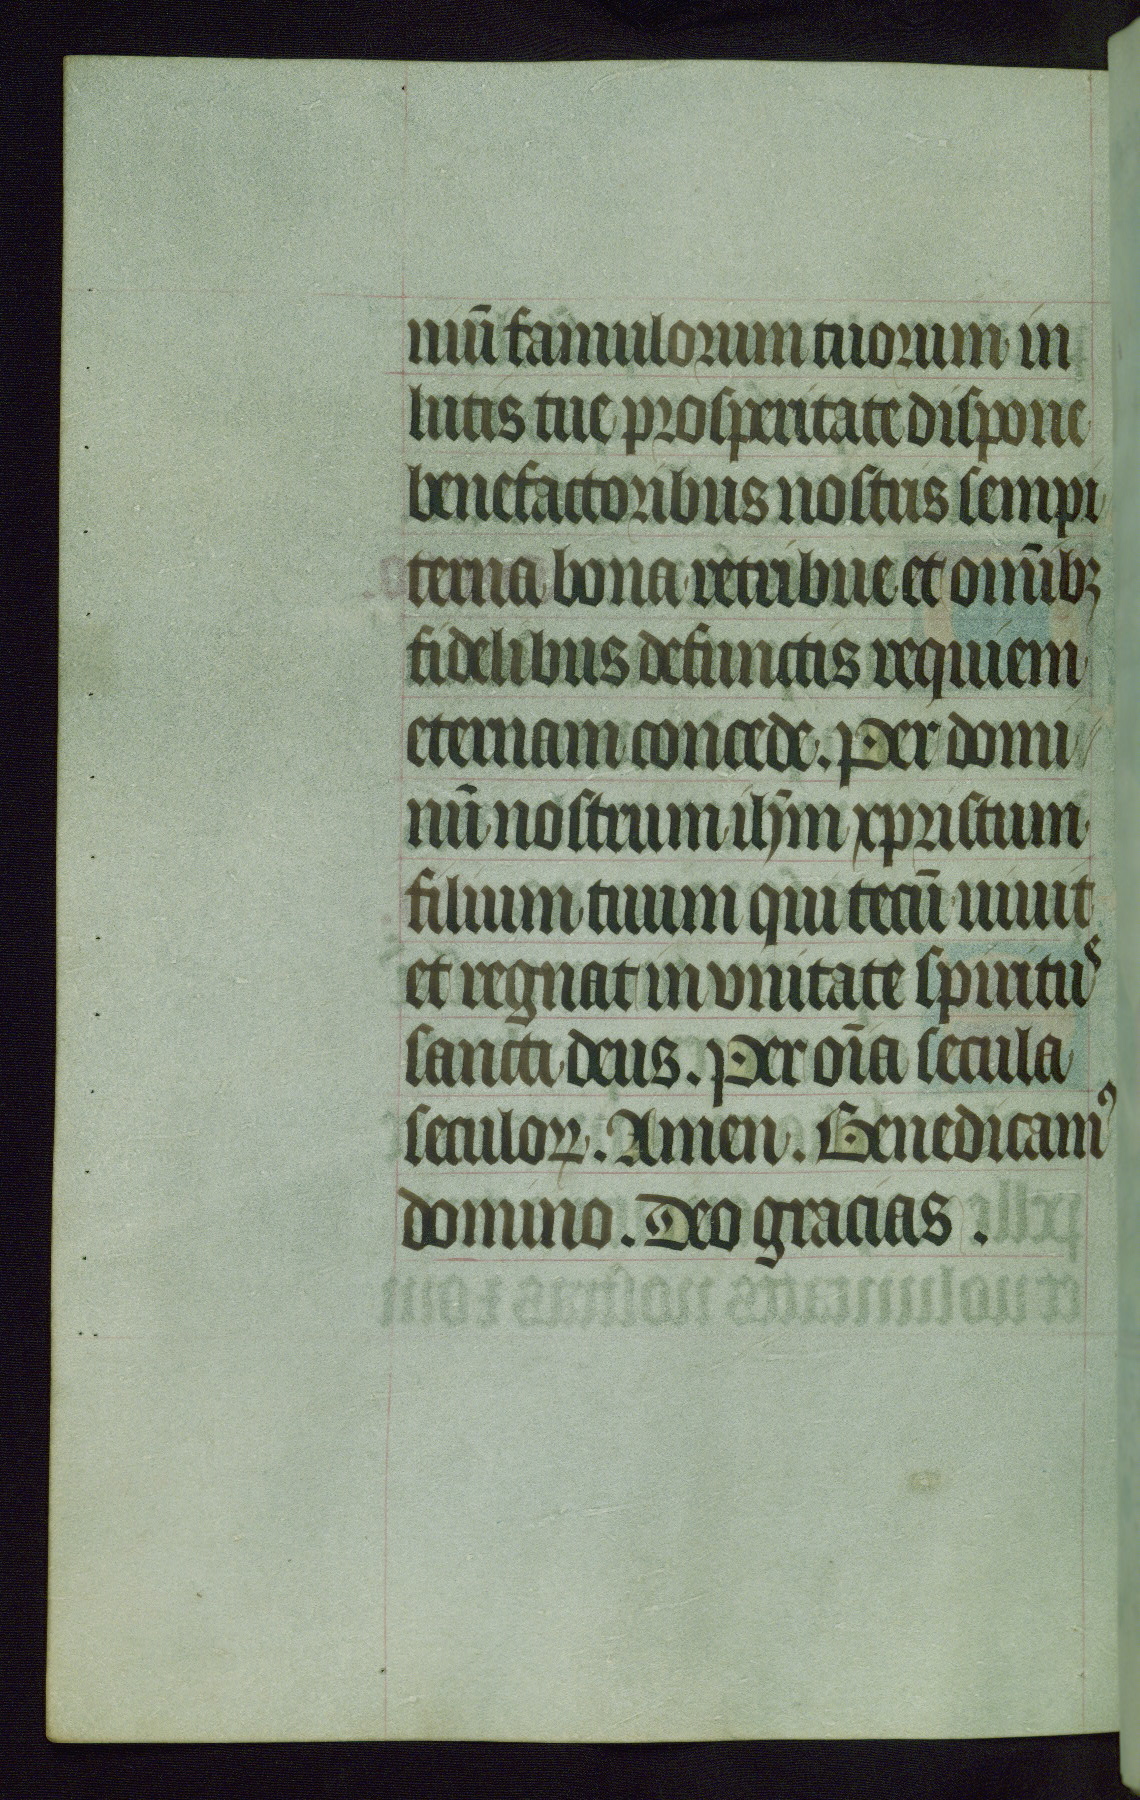 niū famulorum tuorum in
lutis tue prosperitate dispone
benefactoribus nostris sempi
terna bona retribue et om̄ibꝫ
fidelibus defunctis requiem
eternam concede. Per domi
nū nostrum ih̄m xpristum
filium tuum qui tecū uiuit
et regnat in vnitate spiritus
sancti deus. Per oīa secula
seculoꝝ. Amen. Benedicamꝰ
domino. Deo gracias.